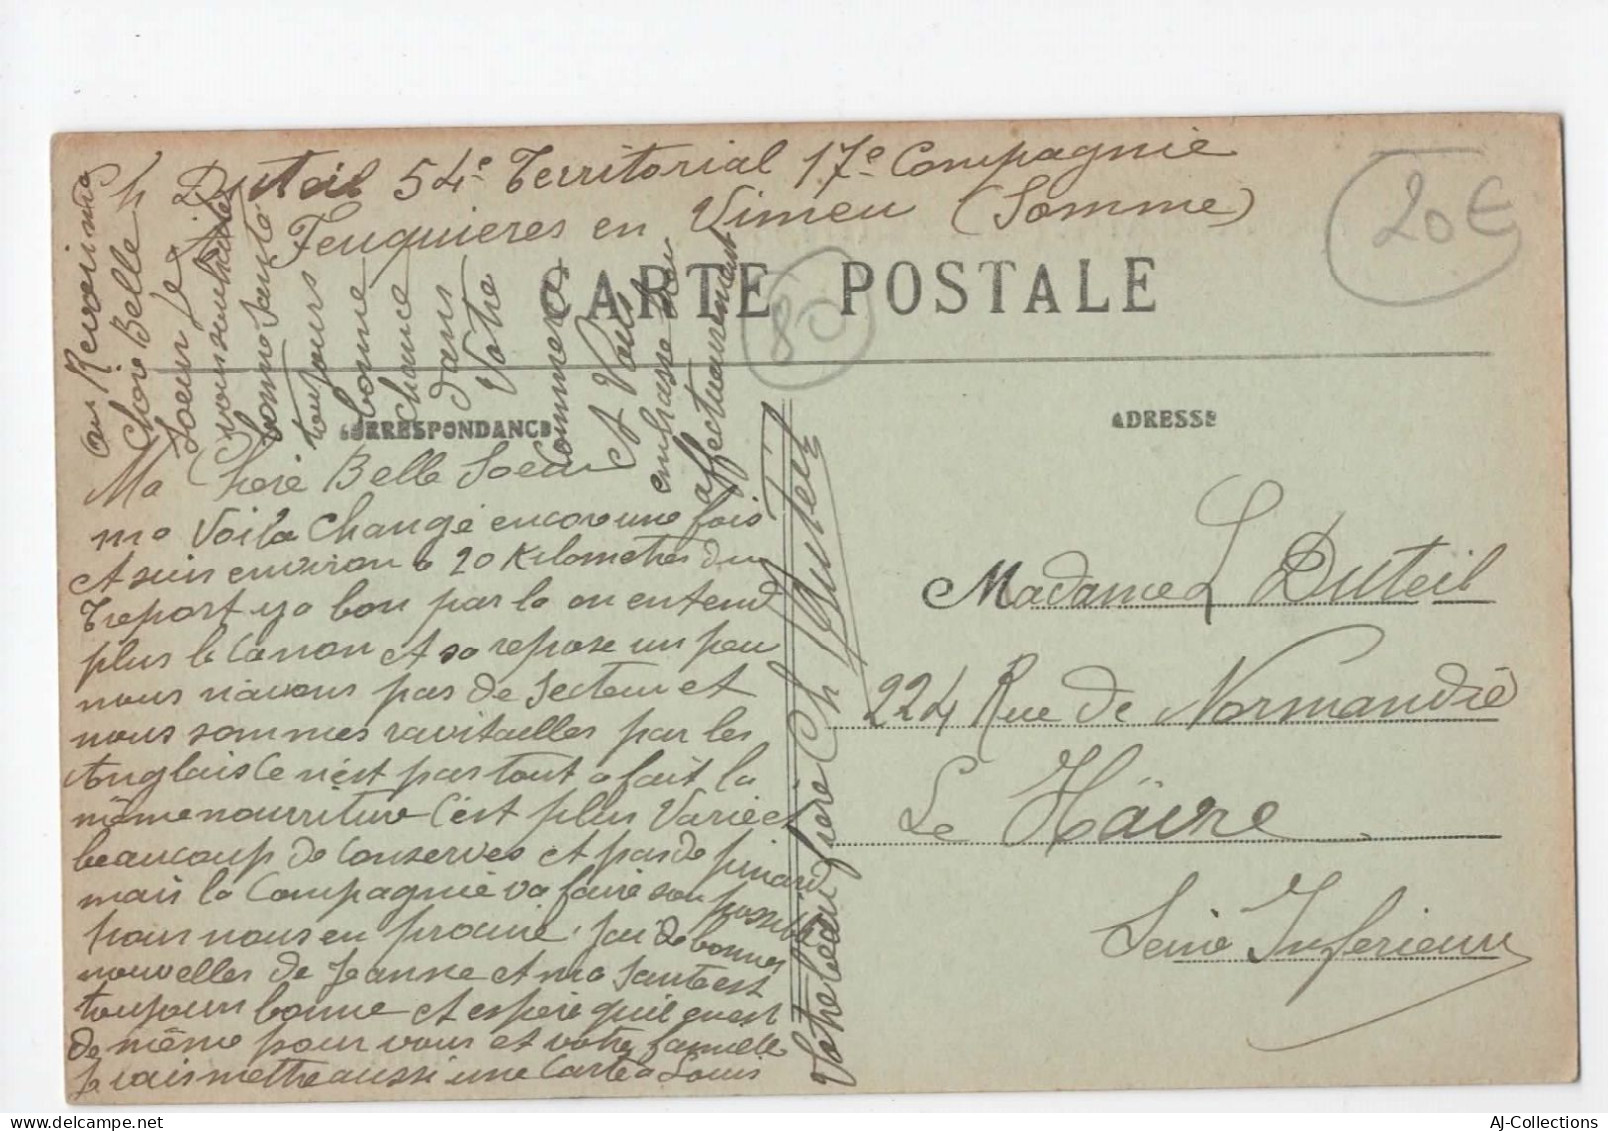 Ch Duteil 54e Territorial 17e Compagnie
Feuquieres en Vimeu (Somme)
20€
80
CARTE POSTALE
CORRESPONDANCE
ADRESSE
Ma Chere Belle Soeur
me Voila Changé encore une fois
et suis environ a 20 Kilometres du
Treport y a bon par la on entend
plus le Canon et sa repose un peu
nous n'avons pas de Secteur et
nous sommes ravitailles par les
Anglais Ce n'est pas tout a fait la
même nourriture C'est plus Varié et
beaucoup de Conserves et pas de pinard
mais la Compagnie va faire son possible
pour nous en procuré, j'ai de bonnes
nouvelles de Jeanne et ma Santé est
toujours bonne et espère quil en est
de même pour vous et votre famille
Je vais mettre aussi une Carte a Louis
au Revoir ma
Chere Belle
Soeur Je
vous souhaite
bonne Santé
toujours
bonne
Chance
dans
Votre
Commerce
et Vous
embrasse bien
affectueusement
Votre beau frère Ch Duteil
Duteil
Madame L Duteil
224 Rue de Normandie
Le Hâvre
Seine Inferieure
AJ-Collections